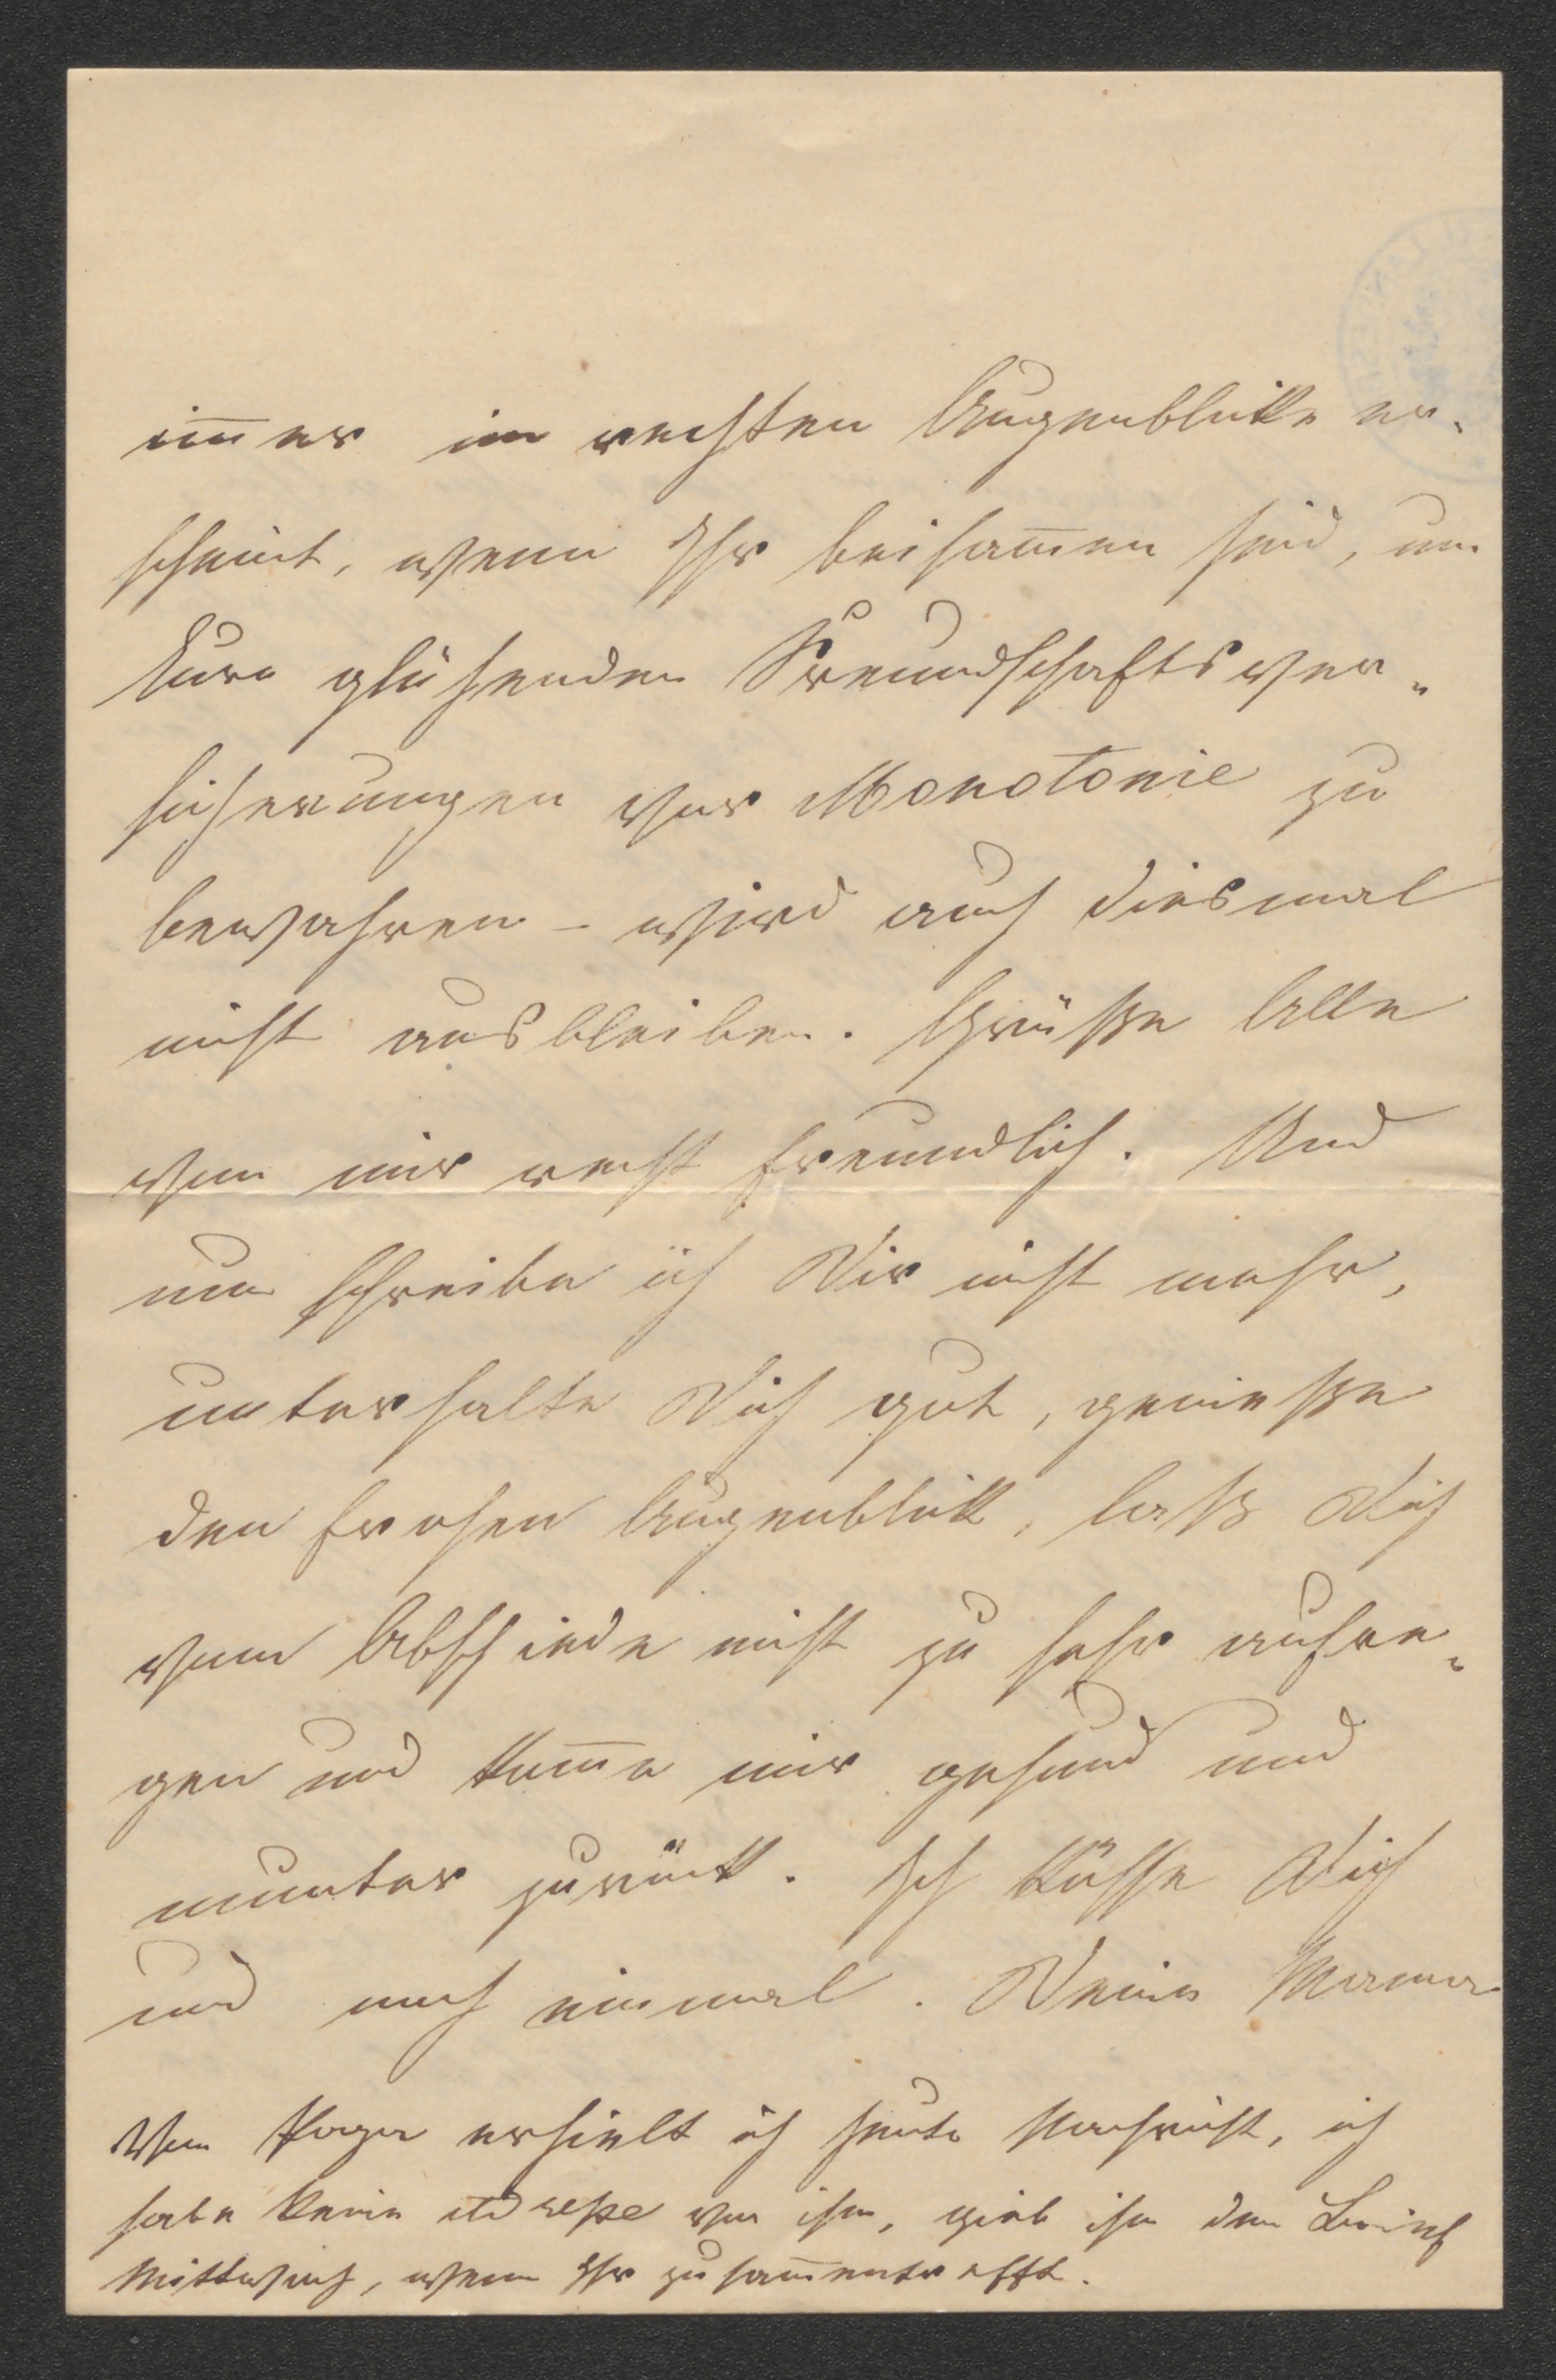 im̅er im rechten Augenblicke er-
scheint, wenn Ihr beisam̅en seid, um
Eure glühenden Freundschaftsver-
sicherungen vor Monotonie zu
bewahren – wird auch diesmal
nicht ausbleiben. Grüße Alle
von mir recht freundlich. Und
nun schreibe ich Dir nicht mehr,
unterhalte Dich gut, genieße
den frohen Augenblick, laß Dich
vom Abschiede nicht zu sehr aufre-
gen und kom̅e mir gesund und
munter zurück. Ich küsse Dich
und noch einmal. Deine Mama
Von Papa erhielt ich heute Nachricht, ich
habe keine Adresse von ihm, gieb ihm den Brief
Mittwoch, wenn Ihr zusam̅entrefft.